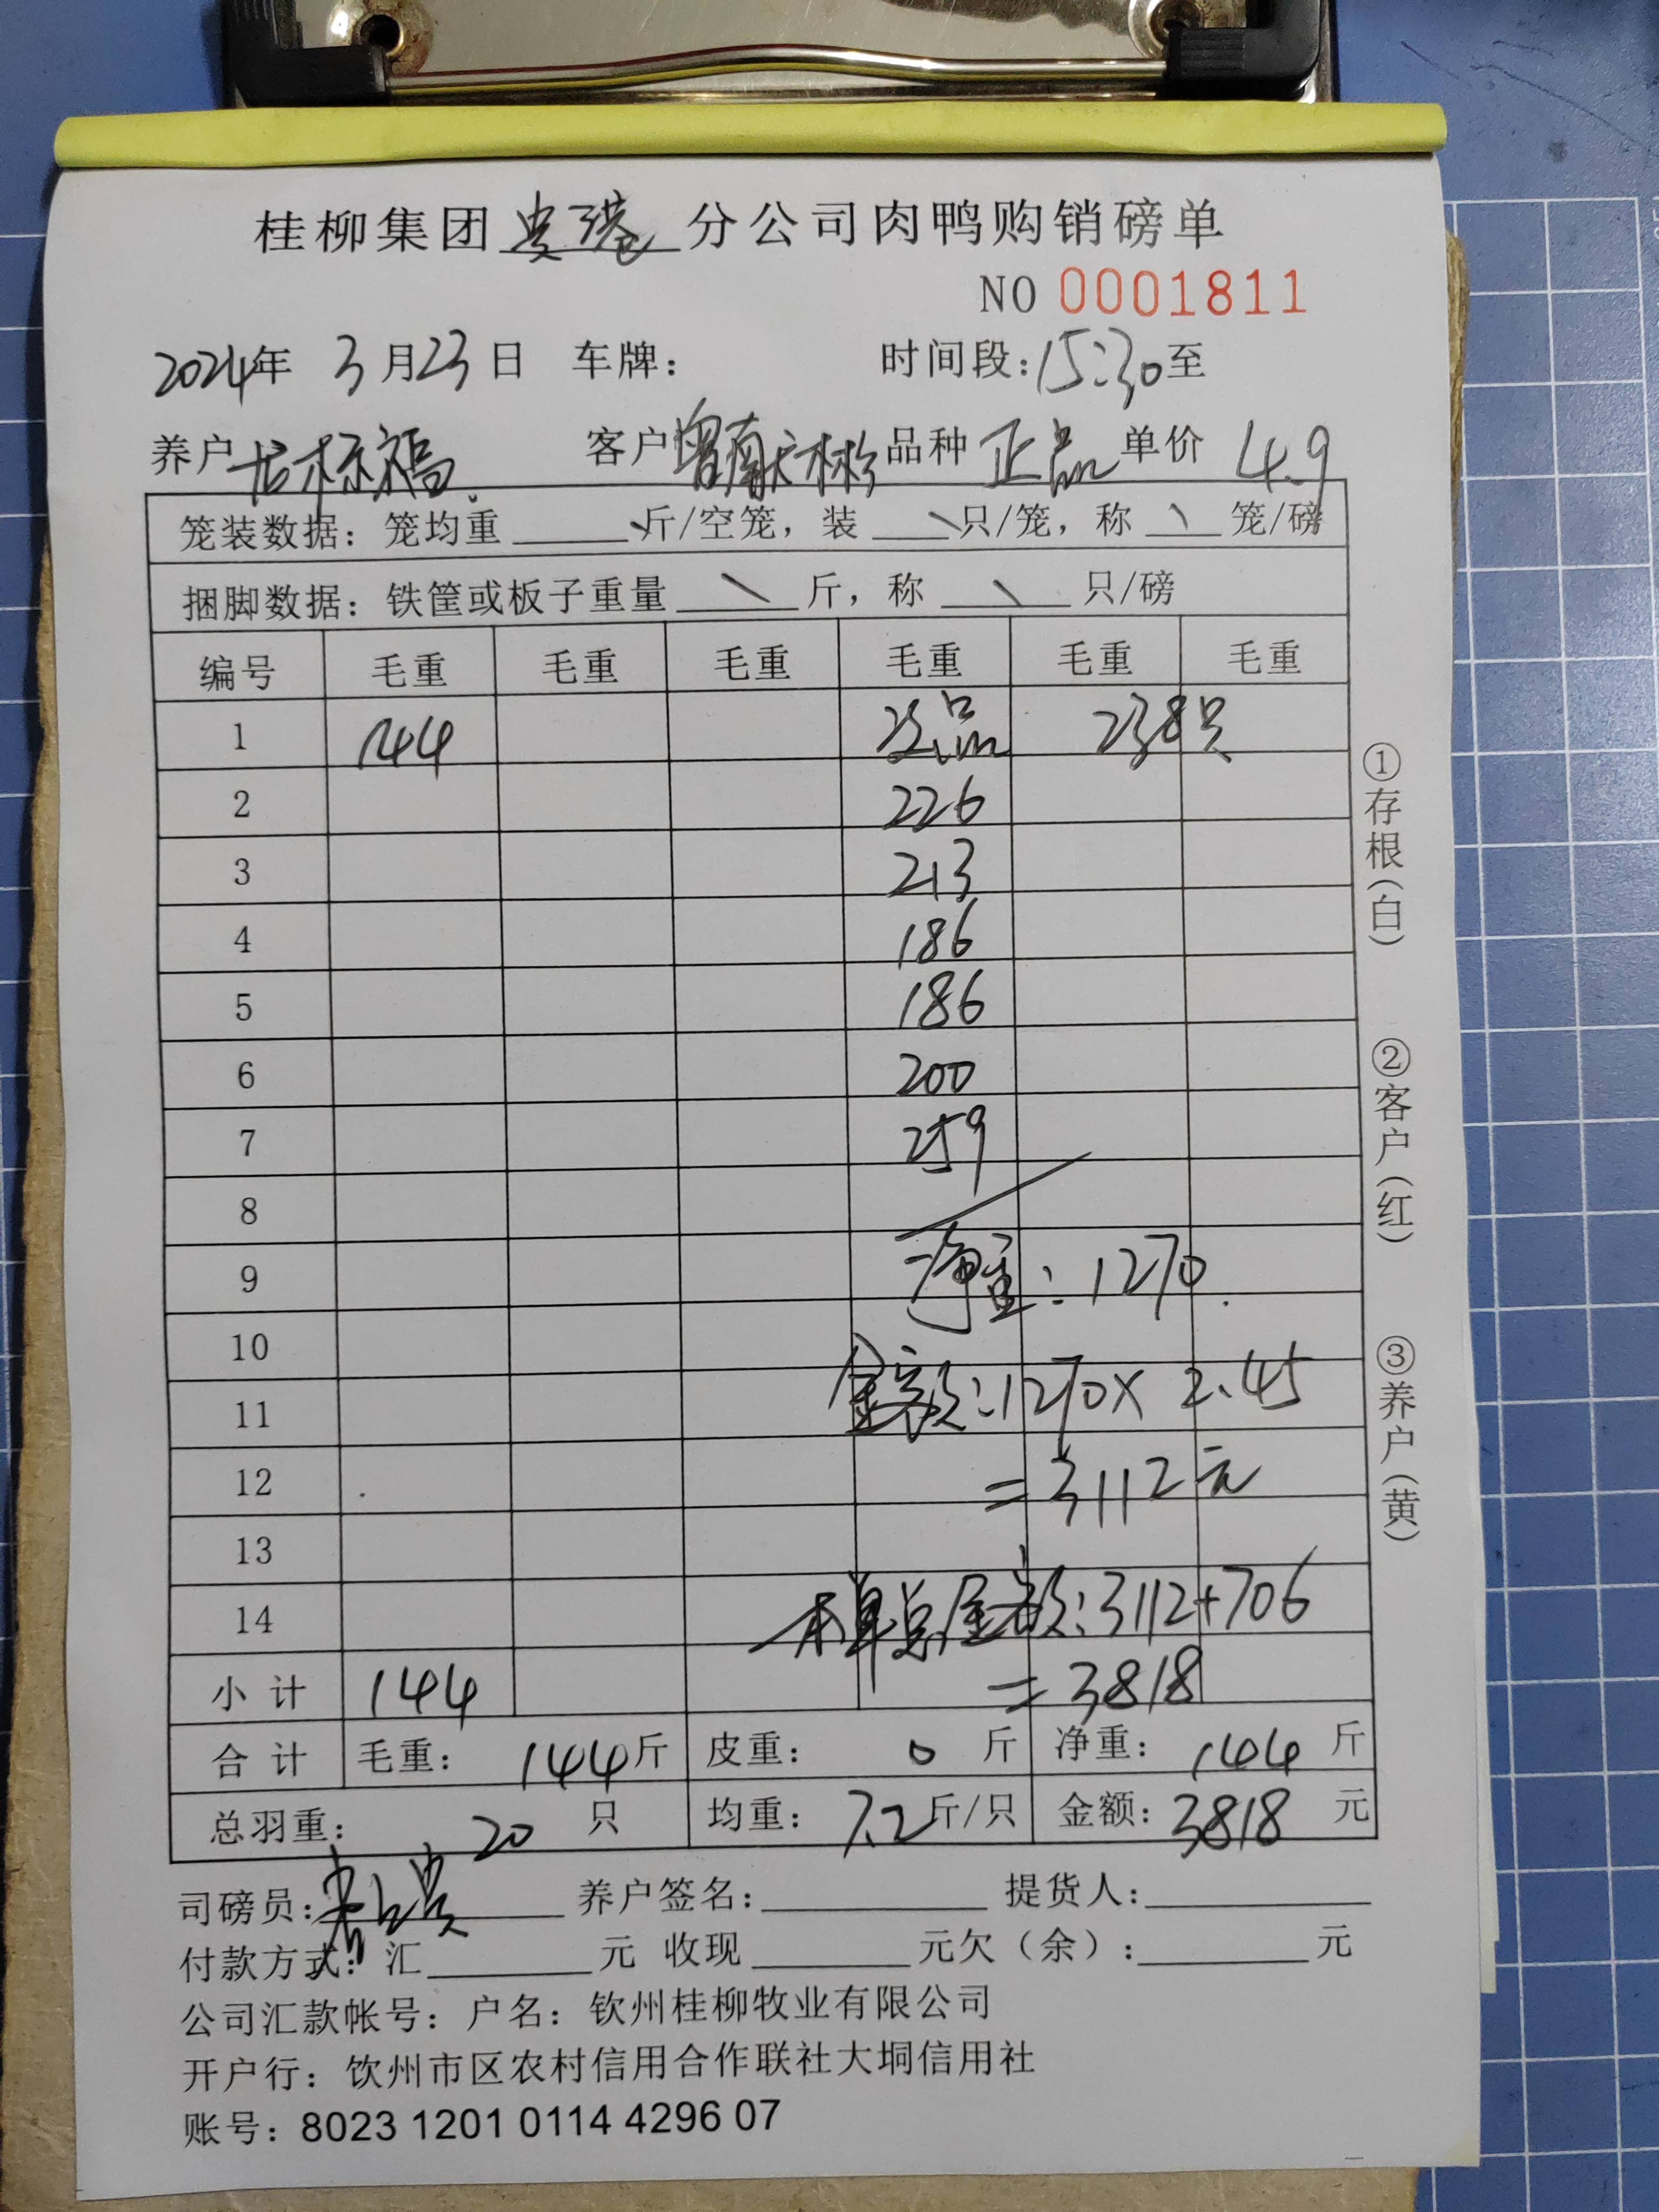 桂柳集团贵港分公司肉鸭购销磅单
NO 0001811
2024年 3月23日 车牌： 时间段：15:30至
养户 龙标福 客户 曾献彬 品种 正品 单价 4.9
笼装数据：笼均重 \ 斤/空笼，装 \ 只/笼，称 \ 笼/磅
捆脚数据：铁筐或板子重量 \ 斤，称 \ 只/磅
编号 毛重 毛重 毛重 毛重 毛重 毛重
1 144 次品 238只
2 226
3 213
4 186
5 186
6 200
7 259
8
9 净重：1270
10
11 金额：1270X 2.45
12 =3112元
13
14 本单总金额：3112+706
小计 144 =3818
合计 毛重： 144斤 皮重： 0 斤 净重： 144 斤
总羽重： 20 只 均重： 7.2斤/只 金额：3818 元
司磅员： 养户签名： 提货人：
付款方式：汇 元 收现 元欠（余）： 元
公司汇款帐号：户名：钦州桂柳牧业有限公司
开户行：钦州市区农村信用合作联社大垌信用社
账号：8023 1201 0114 4296 07
①存根（白）
②客户（红）
③养户（黄）